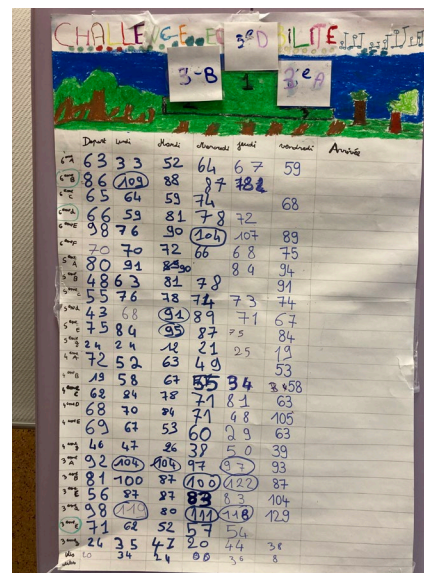 CHALLENGE
3ᵉD
ILITE
3-B
1
3ᵉA
Départ lundi Mardi Mercredi jeudi vendredi Arrivée
6 A 63 33 52 64 67 59
6 B 86 109 88 87
6 C 65 64 59 74 68
6 D 66 59 81 78 72
6 E 98 76 90 104 107 89
6 F 70 70 72 66 68 75
5 A 80 91 90 84 94
5 B 48 63 81 78 91
5 C 55 76 78 74 73 74
5 D 43 68 91 89 71 67
5 E 75 84 95 87 75 84
24 24 12 21 25 19
4 A 72 52 63 49 53
4 B 19 58 67 55 34 58
4 C 62 84 78 71 81 63
4 D 68 70 84 71 48 105
4 E 69 67 53 60 29 63
46 47 26 38 50 39
3 A 92 104 104 97 97 93
3 B 81 100 87 100 122 87
3 C 56 87 87 83 83 104
3 D 98 119 80 111 118 129
3 E 71 62 52 57 54
24 35 47 20 44 38
20 34 24 36 8